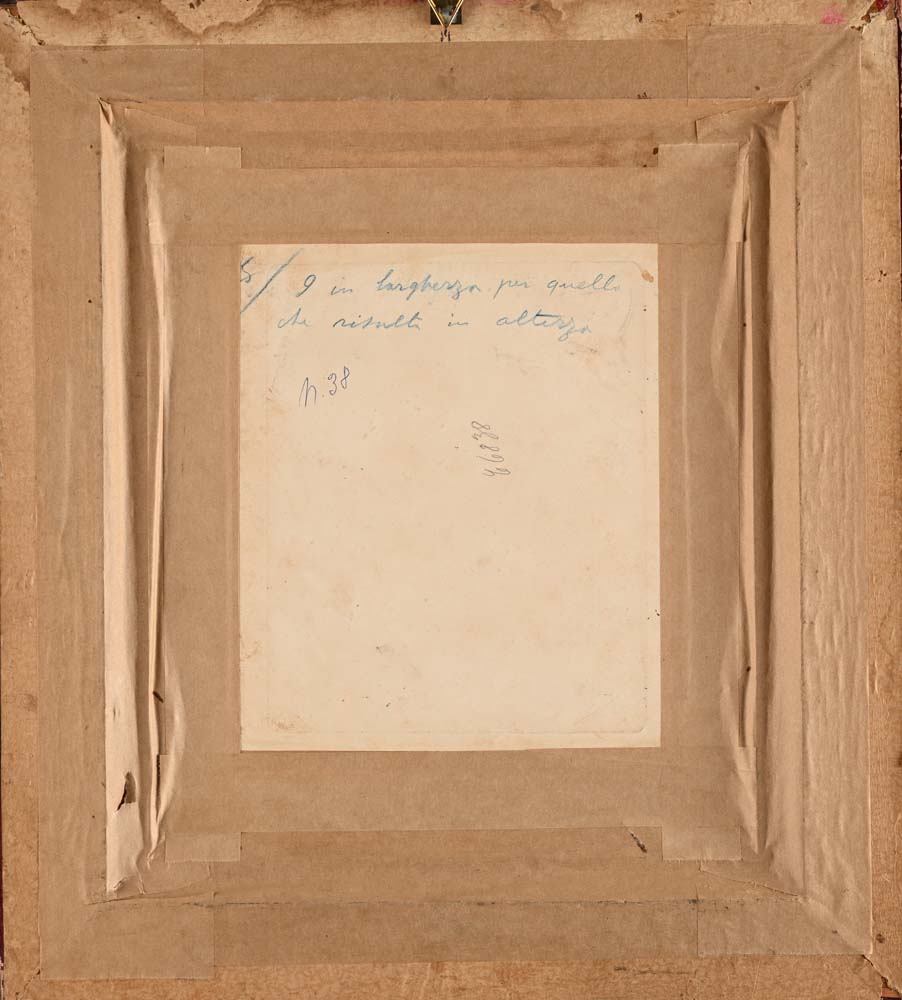 5/ 9 in larghezza per quello
che risulta in altezza
N. 38
46838